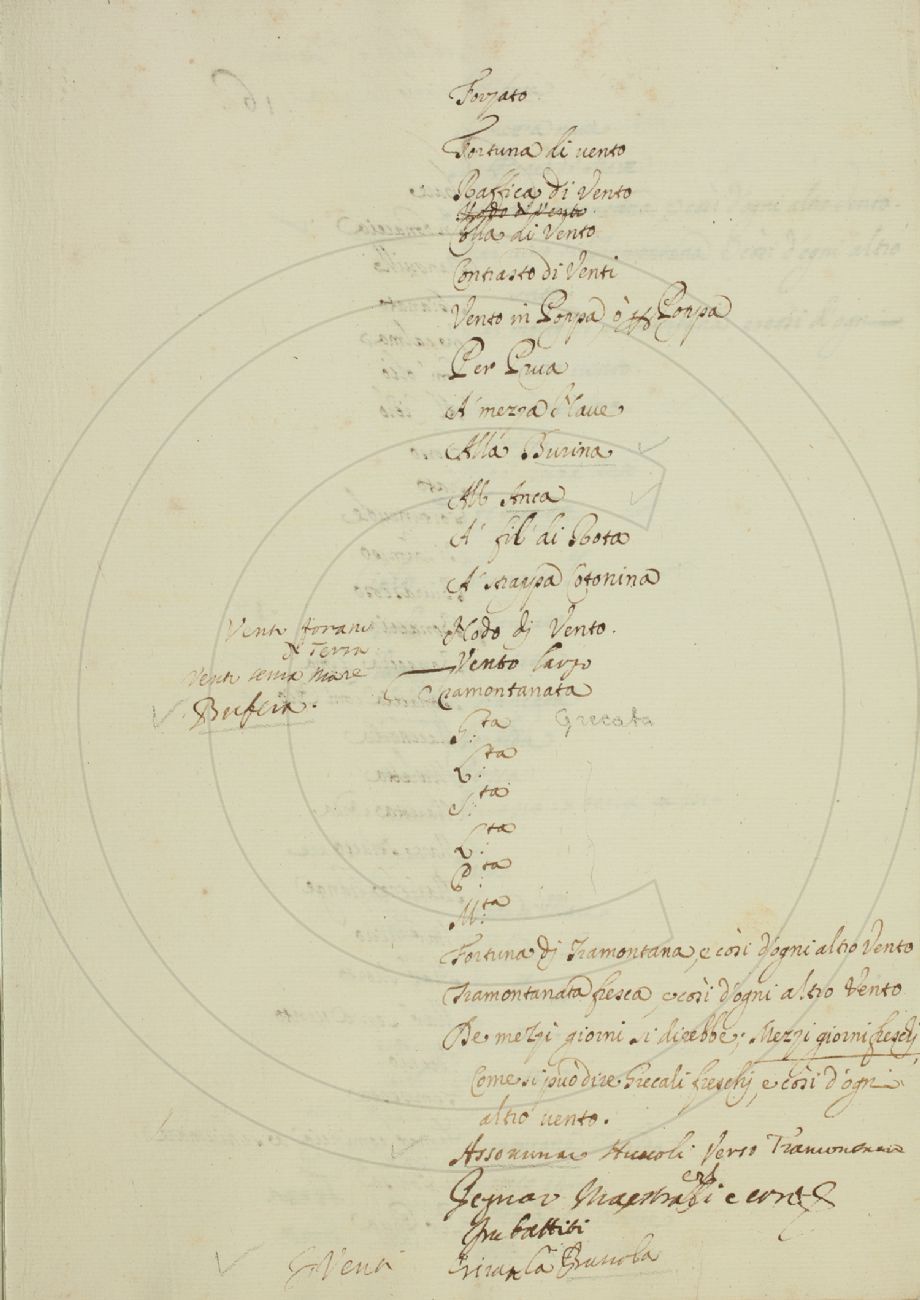 Forzato
Fortuna di vento
Raffica di Vento
Coda di Vento
Contrasto di Venti
Vento in Poppa, ò Poppa
Per Prua
A' mezza Naue
Alla Burina
All' Anca
A' fil' di Rota
A' strappa Cotonina
Nodo di Vento.
Venti forani
di Terra
Vento largo
Venti senza Mare
Tramontanata
Bufera.
G:ta Grecata
L:ta
S:ta
L:ta
P:ta
M:ta
Fortuna di Tramontana, e così d'ogni altro Vento
Tramontanata fresca, e così d'ogni altro Vento
De mezzi giorni si direbbe; Mezzi giorni freschi
Come si può dire Grecali freschi, e così d'ogni
altro vento.
Assommar Nuvoli Verso Tramontana
Regnar Maestrali e
Imbattiti
Venti
Tirar la Bussola